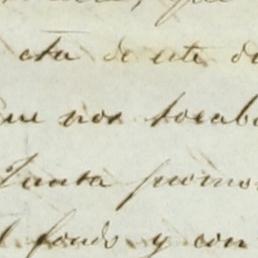 cta de este de
que nos tocaba
Junta promo
l fondo y con